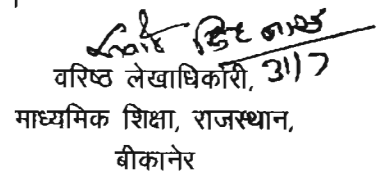 31/7
वरिष्ठ लेखाधिकारी,
माध्यमिक शिक्षा, राजस्थान,
बीकानेर